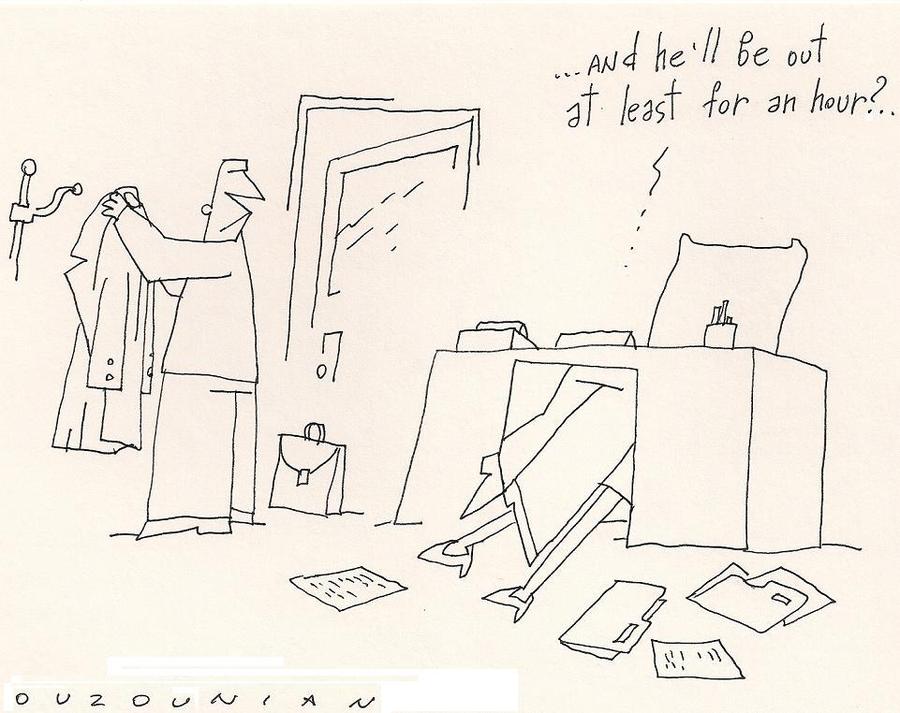 ...AND he'll be out
at least for an hour?..
OUZOUNIAN